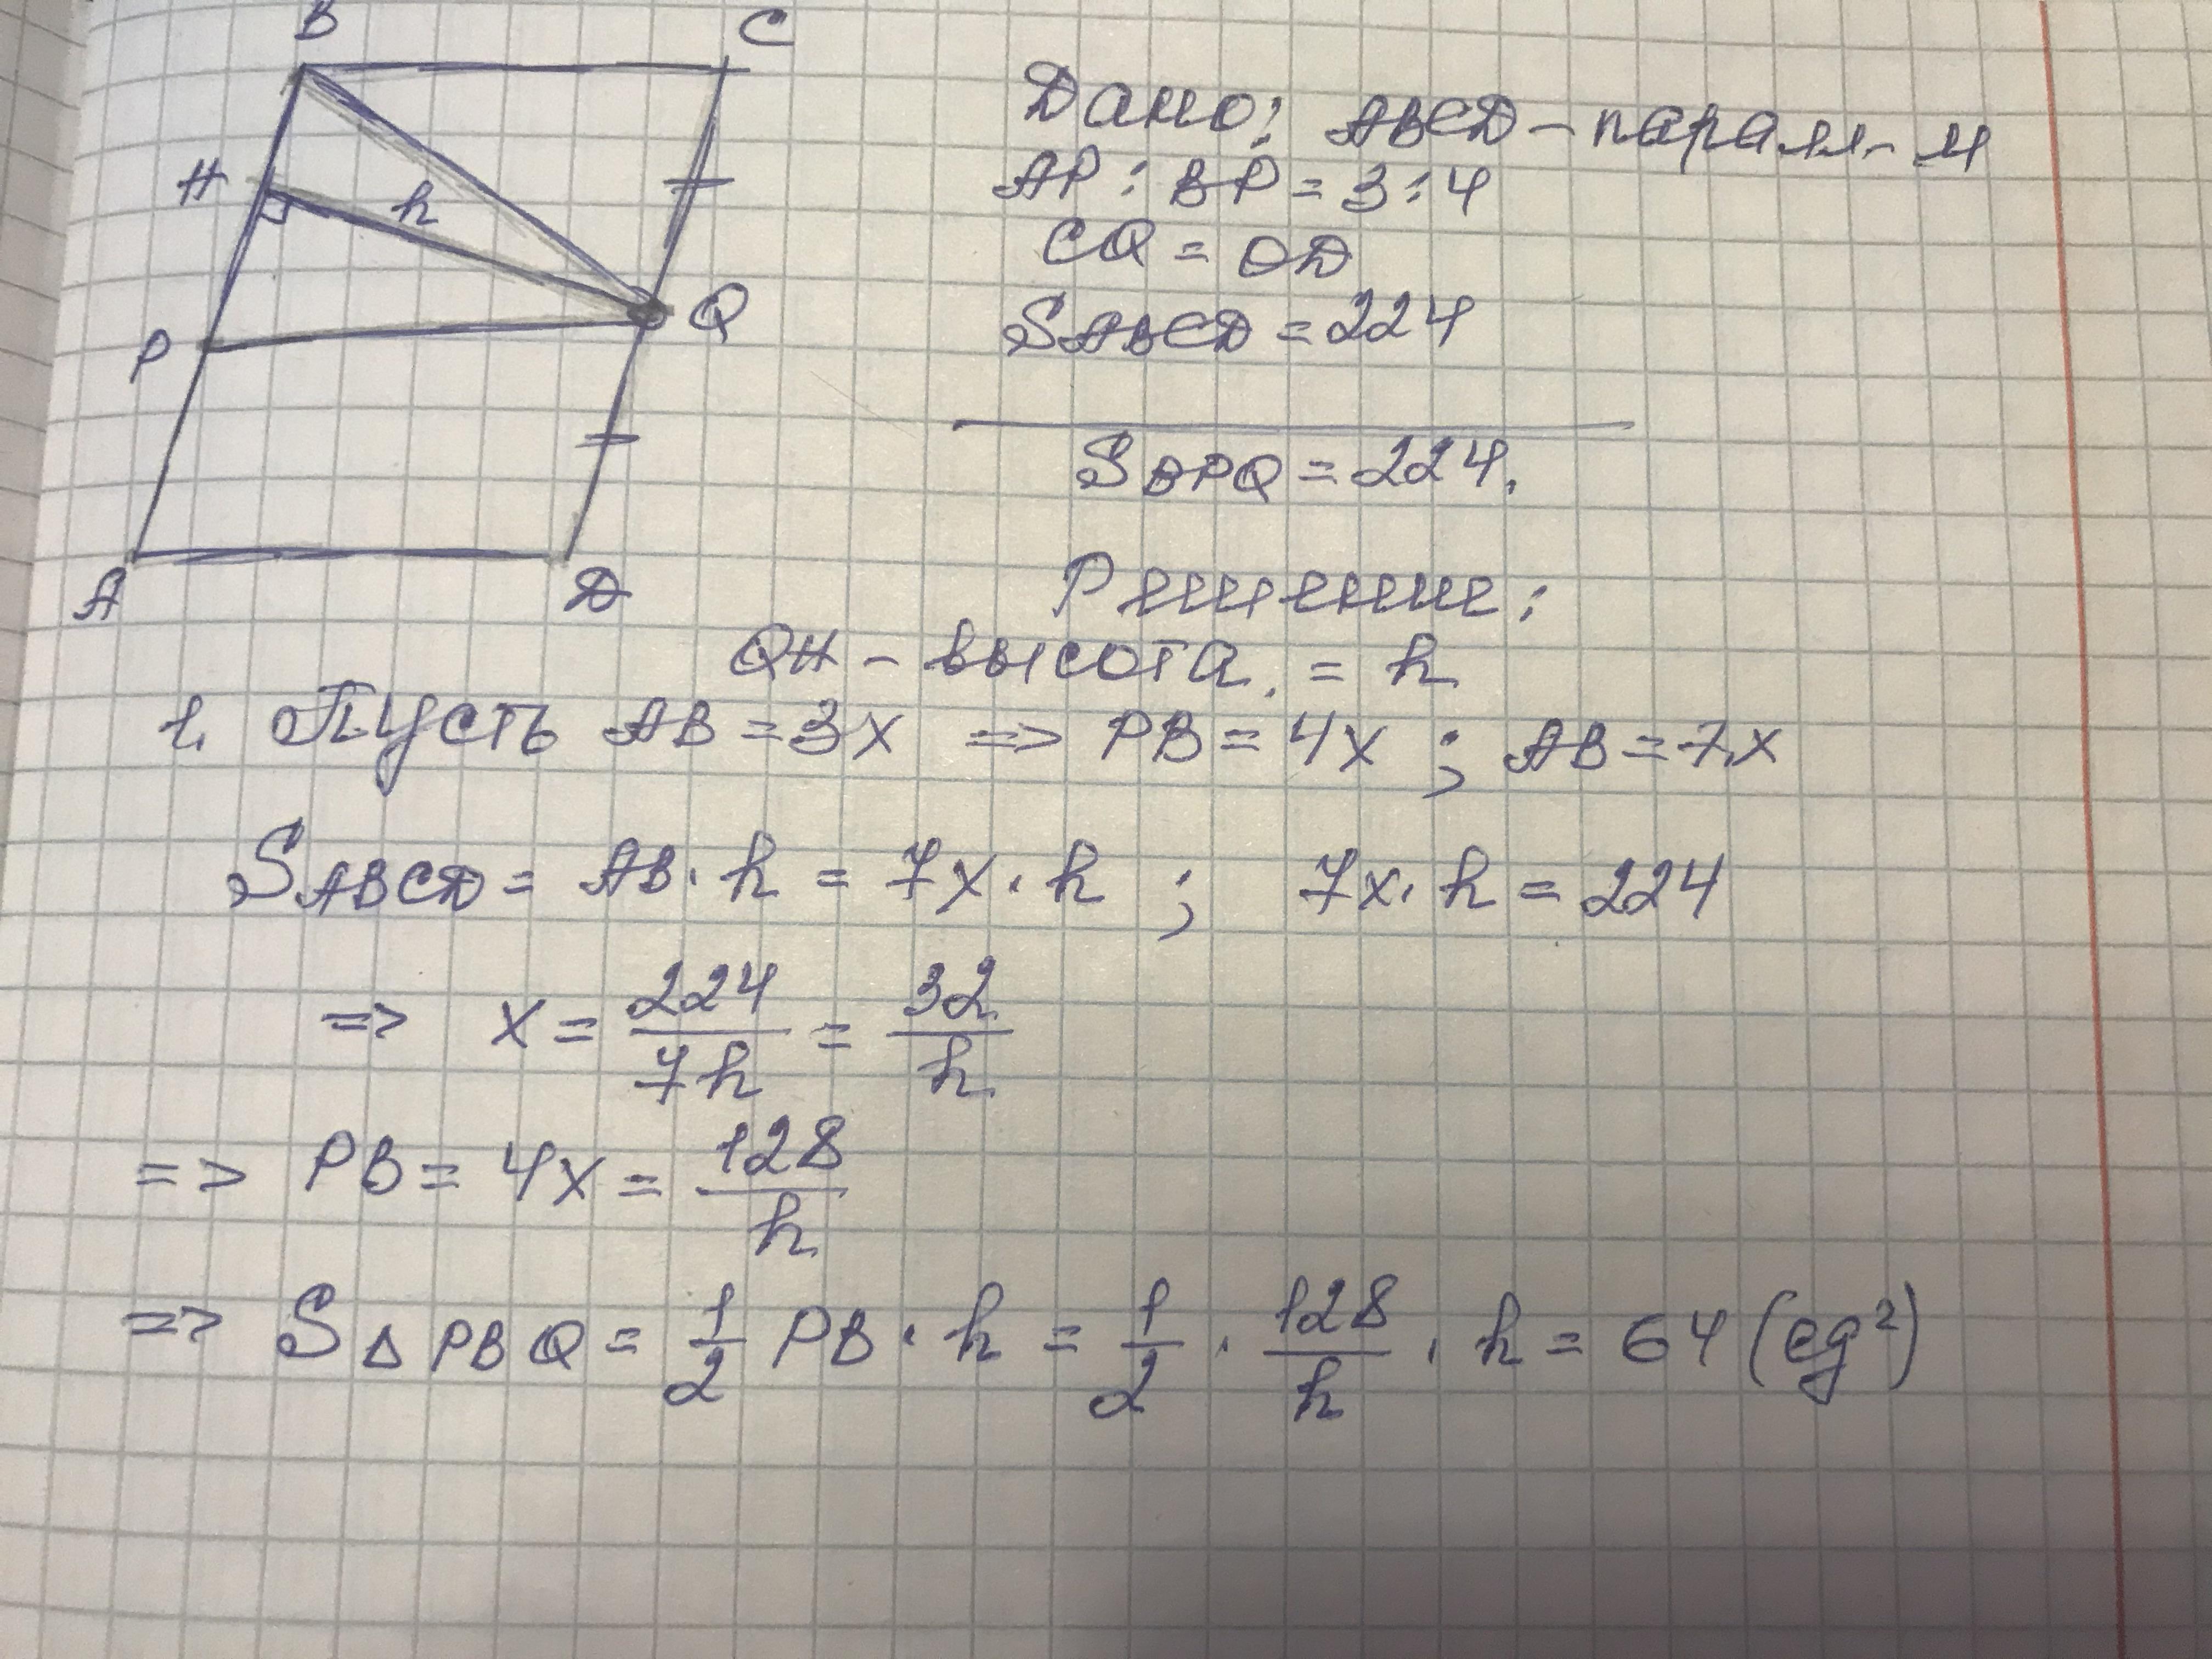 B C
H h
P Q
A D
Дано: ABCD – паралл-м
AP : BP = 3 : 4
CQ = QD
S ABCD = 224
S BPQ = 224.
Решение:
QH – высота. = h
1. Пусть AB = 3x => PB = 4x ; AB = 7x
S ABCD = AB · h = 7x · h ; 7x · h = 224
=> x = 224/7h = 32/h
=> PB = 4x = 128/h
=> S Δ PBQ = 1/2 PB · h = 1/2 · 128/h · h = 64 (ед²)